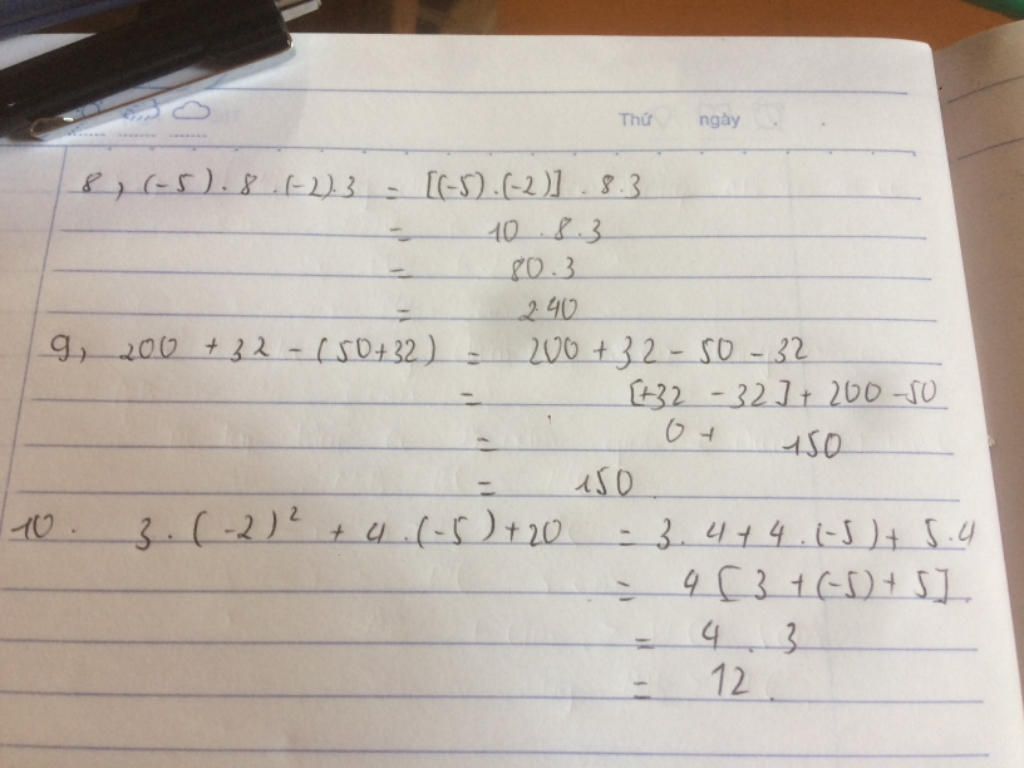 Thứ ngày
8, (-5).8.(-2).3 = [(-5).(-2)].8.3
= 10.8.3
= 80.3
= 240
9, 200 + 32 - (50+32) = 200 + 32 - 50 - 32
= [+32 - 32] + 200 - 50
= 0 + 150
= 150
10. 3.(-2)² + 4.(-5)+20 = 3.4+4.(-5)+5.4
= 4[3+(-5)+5].
= 4.3
= 12.